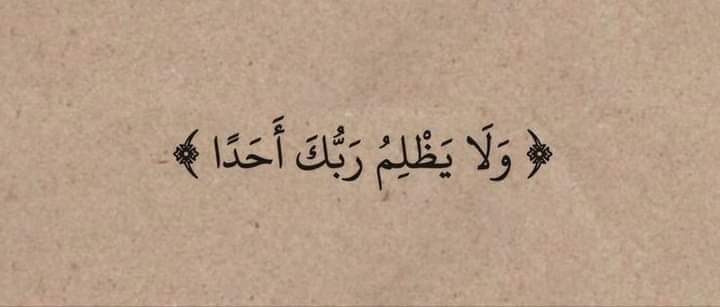 ﴿ وَلَا يَظْلِمُ رَبُّكَ أَحَدًا ﴾